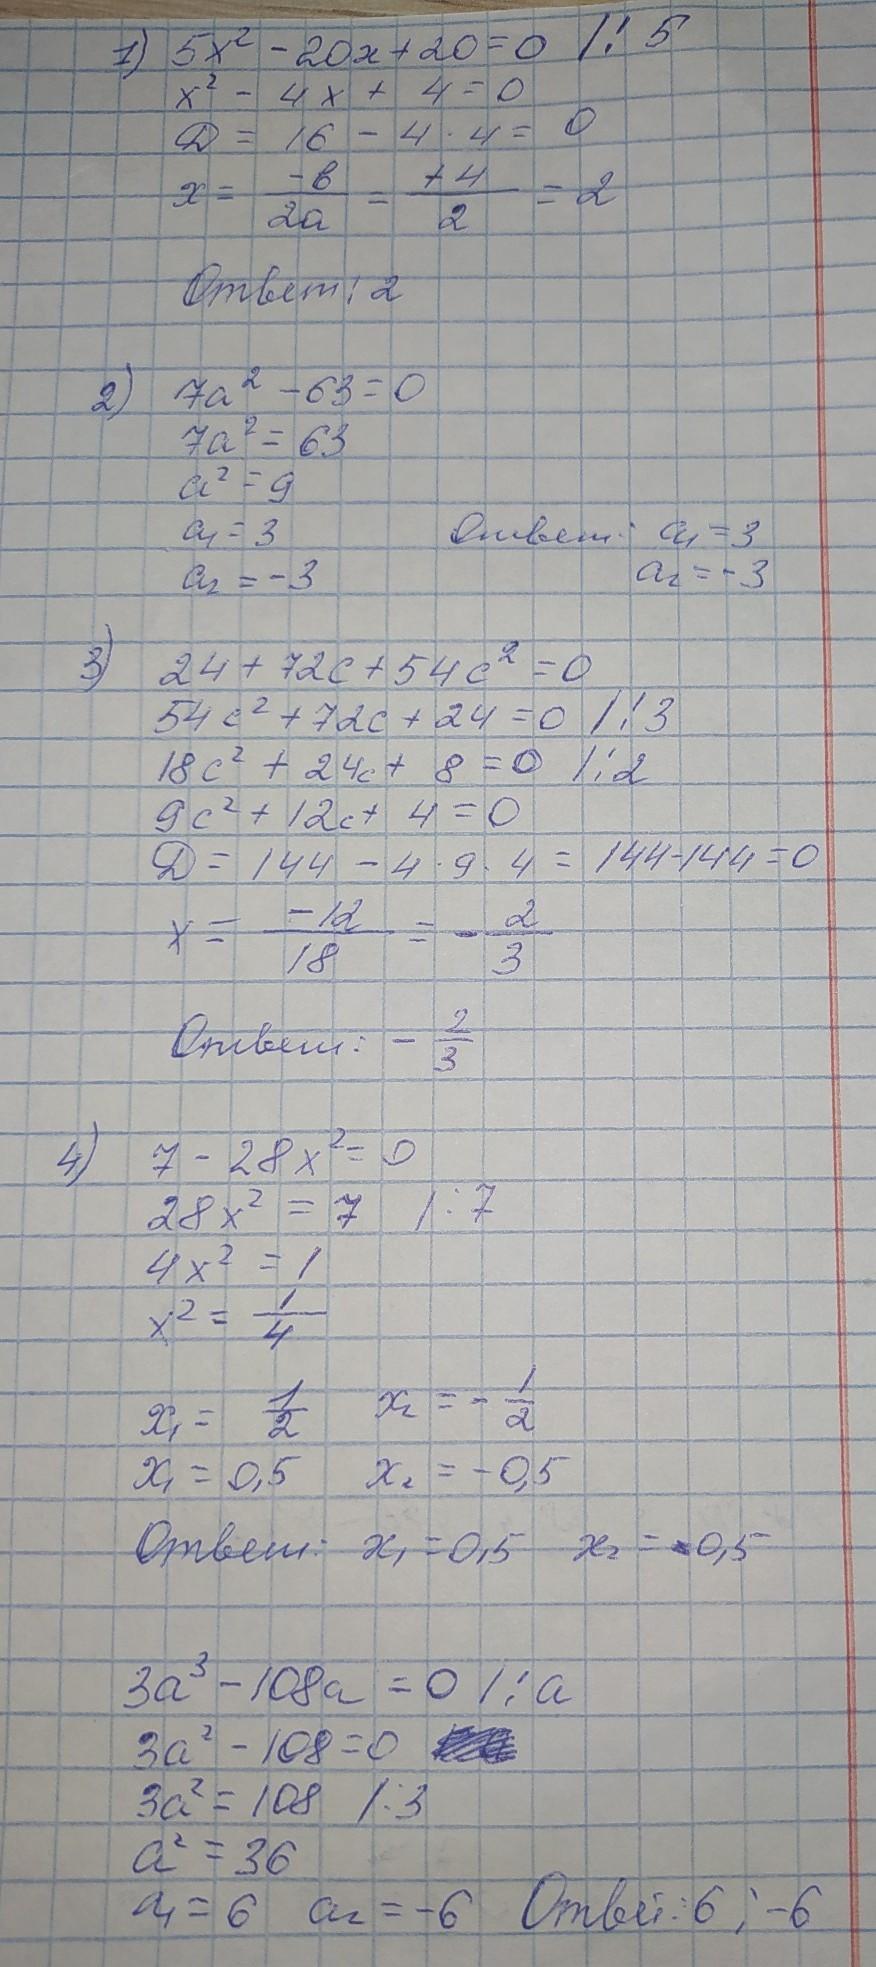 1) 5x² - 20x + 20 = 0 /: 5
x² - 4x + 4 = 0
D = 16 - 4 · 4 = 0
x = -b/2a = +4/2 = 2
Ответ: 2
2) 7a² - 63 = 0
7a² = 63
a² = 9
a₁ = 3 Ответ: a₁ = 3
a₂ = -3 a₂ = -3
3) 24 + 72c + 54c² = 0
54c² + 72c + 24 = 0 /: 3
18c² + 24c + 8 = 0 /: 2
9c² + 12c + 4 = 0
D = 144 - 4 · 9 · 4 = 144-144 = 0
x = -12/18 = -2/3
Ответ: -2/3
4) 7 - 28x² = 0
28x² = 7 /: 7
4x² = 1
x² = 1/4
x₁ = 1/2 x₂ = -1/2
x₁ = 0,5 x₂ = -0,5
Ответ: x₁ = 0,5 x₂ = -0,5
3a³ - 108a = 0 /: a
3a² - 108 = 0
3a² = 108 /: 3
a² = 36
a₁ = 6 a₂ = -6 Ответ: 6 ; -6